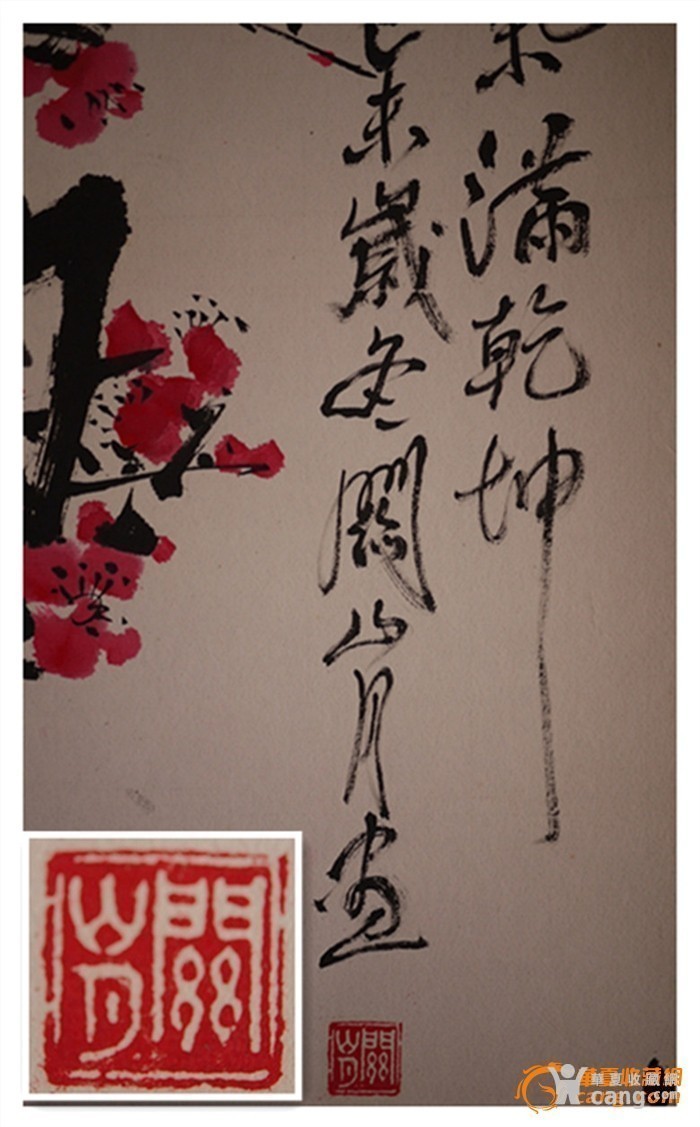 滿乾坤
未歲冬關山月畫
關山月
關山月
華夏收藏網
cang.com